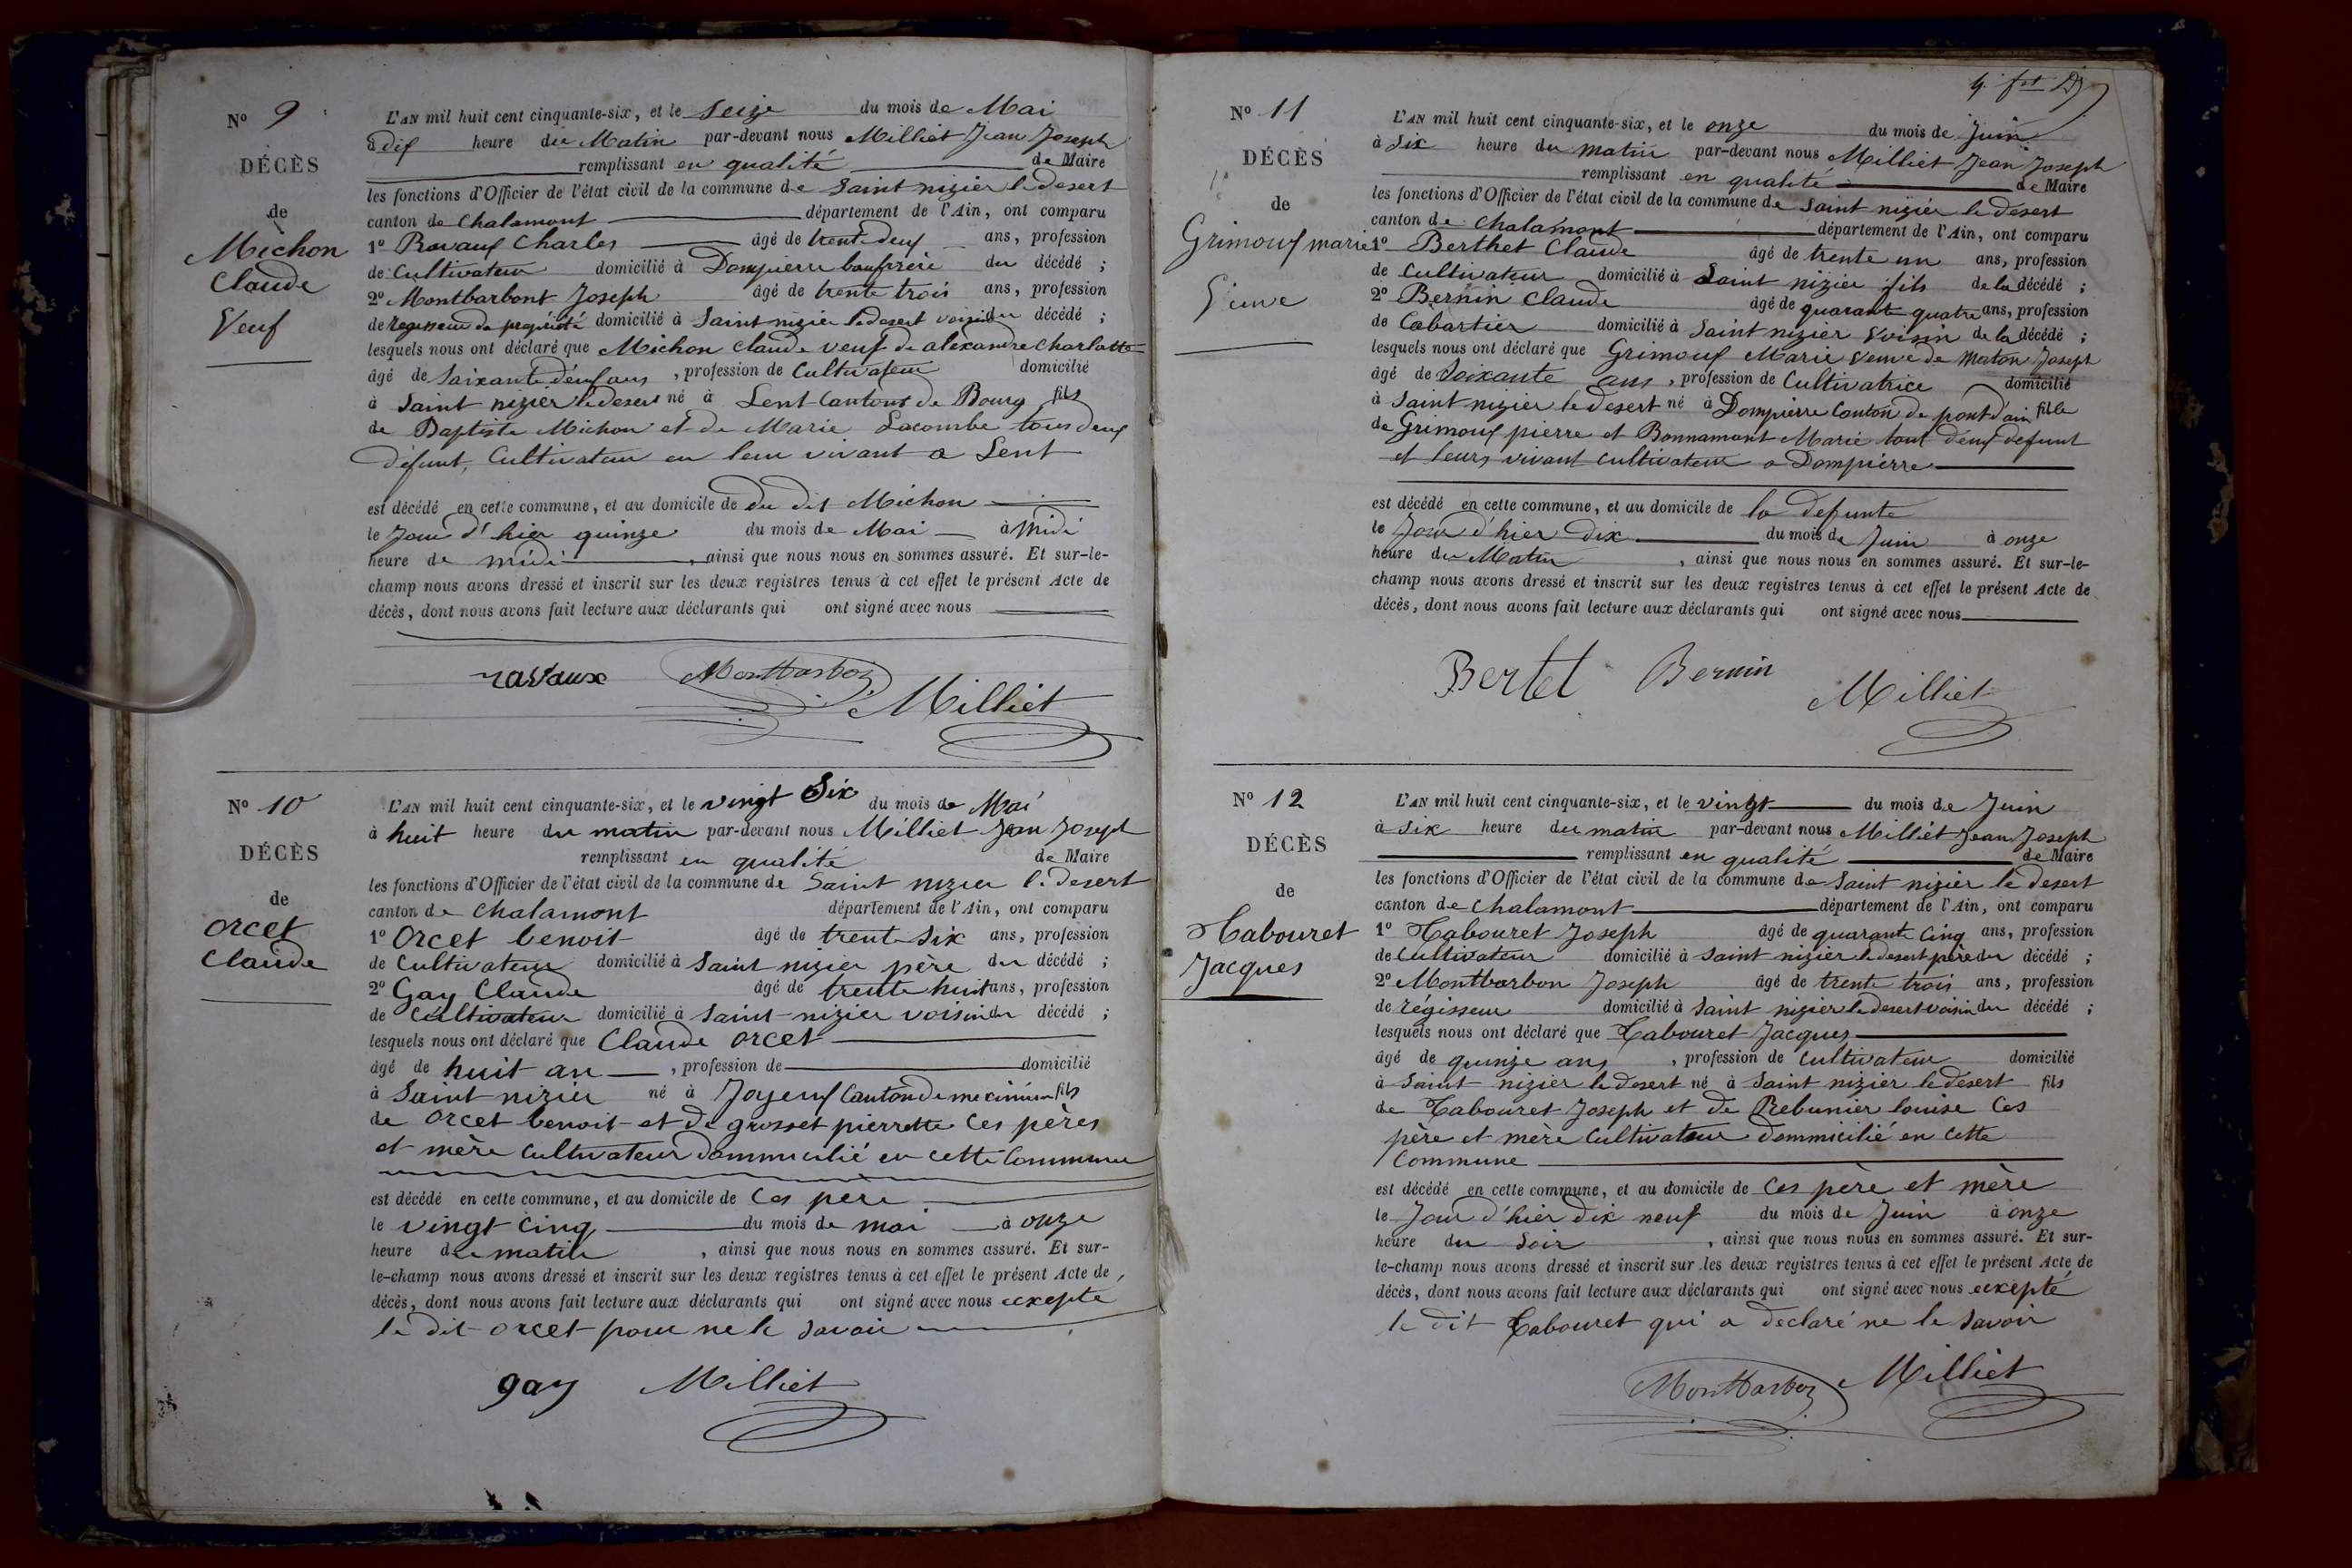 N° 9
DÉCÈS
de
Michon
Claude
Veuf
L'AN mil huit cent cinquante-six, et le seize du mois de Mai
à dix heure du Matin par-devant nous Milliet Jean Joseph
remplissant en qualité de Maire
les fonctions d'Officier de l'état civil de la commune de Saint nizier le desert
canton de Chalamont département de l'Ain, ont comparu
1° Ravaux Charles âgé de trente deux ans, profession
de Cultivateur domicilié à Dompierre baufrère du décédé ;
2° Montbarbont Joseph âgé de trente trois ans, profession
de regisseur de propriété domicilié à Saint nizier le desert voisin du décédé ;
lesquels nous ont déclaré que Michon Claude veuf de alexandre Charlotte
âgé de Soixante deux ans, profession de Cultivateur domicilié
à Saint nizier le desert né à Lent Canton de Bourg fils
de Baptiste Michon et de Marie Lacombe tous deux
défunt, Cultivateur en leur vivant a Lent
est décédé en cette commune, et au domicile de du dit Michon
le Jour d'hier quinze du mois de Mai à Midi
heure de midi, ainsi que nous nous en sommes assuré. Et sur-le-
champ nous avons dressé et inscrit sur les deux registres tenus à cet effet le présent Acte de
décès, dont nous avons fait lecture aux déclarants qui ont signé avec nous
ravaux Montbarbon
Milliet
N° 10
DÉCÈS
de
Orcet
Claude
L'AN mil huit cent cinquante-six, et le vingt Six du mois de Mai
à huit heure du matin par-devant nous Milliet Jean Joseph
remplissant en qualité de Maire
les fonctions d'Officier de l'état civil de la commune de Saint nizier le desert
canton de Chalamont département de l'Ain, ont comparu
1° Orcet benoit âgé de trente Six ans, profession
de Cultivateur domicilié à Saint nizier père du décédé ;
2° Gay Claude âgé de trente huit ans, profession
de Cultivateur domicilié à Saint-nizier voisin du décédé ;
lesquels nous ont déclaré que Claude Orcet
âgé de huit an, profession de domicilié
à Saint nizier né à Joyeux Canton de meximieu fils
de Orcet benoit et de grosset pierrette Ces pères
et mère Cultivateur dommicilié en cette Commune
est décédé en cette commune, et au domicile de Ces père
le vingt Cinq du mois de mai à onze
heure du matin, ainsi que nous nous en sommes assuré. Et sur-
le-champ nous avons dressé et inscrit sur les deux registres tenus à cet effet le présent Acte de
décès, dont nous avons fait lecture aux déclarants qui ont signé avec nous excepte
le dit Orcet pour ne le Savoir
gay Milliet
N° 11
DÉCÈS
de
Grimoux marie
Veuve
L'AN mil huit cent cinquante-six, et le onze du mois de Juin
à Six heure du matin par-devant nous Milliet Jean Joseph
remplissant en qualité de Maire
les fonctions d'Officier de l'état civil de la commune de Saint nizier le desert
canton de Chalamont département de l'Ain, ont comparu
1° Berthet Claude âgé de trente un ans, profession
de Cultivateur domicilié à Saint nizier fils de la décédé ;
2° Bernin Claude âgé de quarant quatre ans, profession
de Cabartier domicilié à Saint nizier Voisin de la décédé ;
lesquels nous ont déclaré que Grimoux Marie Veuve de Maton Joseph
âgé de Soixante ans, profession de Cultivatrice domicilié
à Saint nizier le desert né à Dompierre Canton de pont d'ain fille
de Grimoux pierre et Bonnamont Marie tout deux defunt
et leurs vivant Cultivateur a Dompierre
est décédé en cette commune, et au domicile de la defunte
le Jour d'hier dix du mois de Juin à onze
heure du Matin, ainsi que nous nous en sommes assuré. Et sur-le-
champ nous avons dressé et inscrit sur les deux registres tenus à cet effet le présent Acte de
décès, dont nous avons fait lecture aux déclarants qui ont signé avec nous
Bertet Bernin
Milliet
N° 12
DÉCÈS
de
Tabouret
Jacques
L'AN mil huit cent cinquante-six, et le vingt du mois de Juin
à Six heure du matin par-devant nous Milliet Jean Joseph
remplissant en qualité de Maire
les fonctions d'Officier de l'état civil de la commune de Saint nizier le desert
canton de Chalamont département de l'Ain, ont comparu
1° Tabouret Joseph âgé de quarante Cinq ans, profession
de Cultivateur domicilié à Saint nizier le desert père du décédé ;
2° Montbarbon Joseph âgé de trente trois ans, profession
de régisseur domicilié à Saint nizier le desert voisin du décédé ;
lesquels nous ont déclaré que Tabouret Jacques
âgé de quinze ans, profession de Cultivateur domicilié
à Saint nizier le desert né à Saint nizier le desert fils
de Tabouret Joseph et de Rebunier louise Ces
père et mère Cultivateur dommicilié en Cette
Commune
est décédé en cette commune, et au domicile de Ces père et mère
le Jour d'hier dix neuf du mois de Juin à onze
heure du Soir, ainsi que nous nous en sommes assuré. Et sur-
le-champ nous avons dressé et inscrit sur les deux registres tenus à cet effet le présent Acte de
décès, dont nous avons fait lecture aux déclarants qui ont signé avec nous excepté
le dit Tabouret qui a declaré ne le Savoir
Montbarbon Milliet